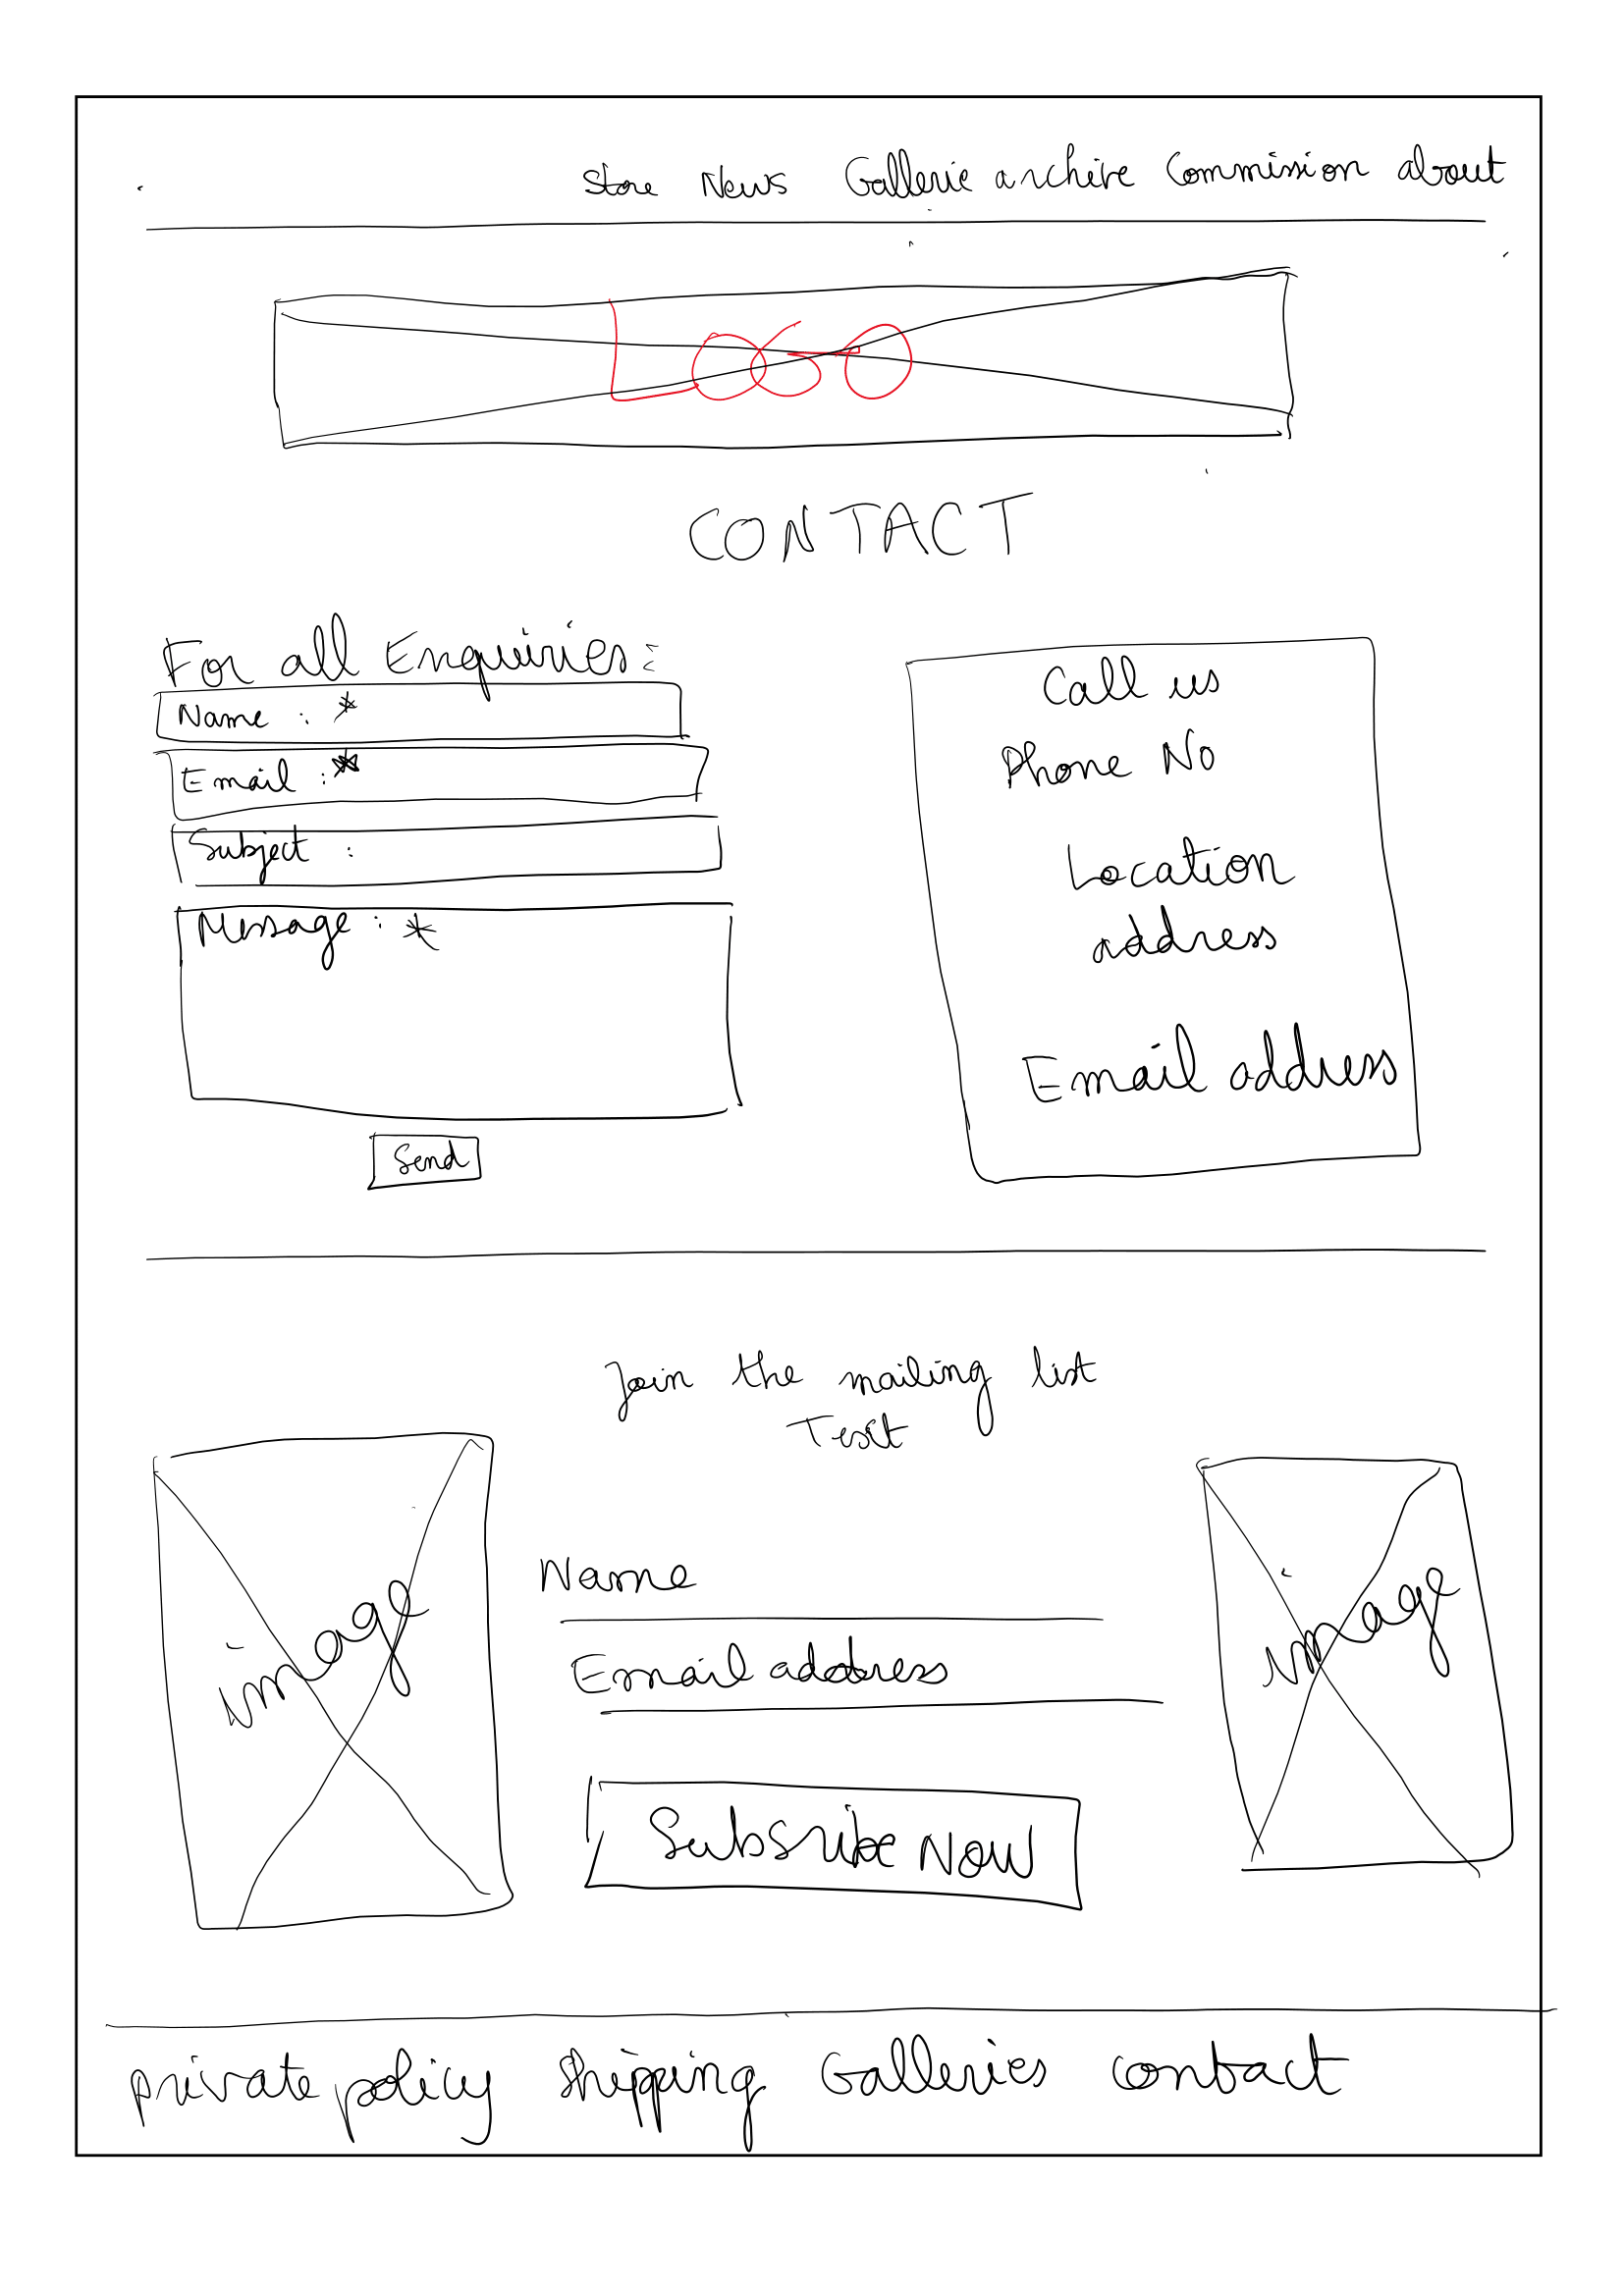 Store News Gallerie archive Commission about
LOGO
CONTACT
For all Enquiries:
Name : *
Email : *
Subject :
Message : *
Send
Call us
Phone No
Location
address
Email address
Join the mailing list
Text
image
Name
Email address
Subsribe Now
image
private policy Shipping Galleries contact